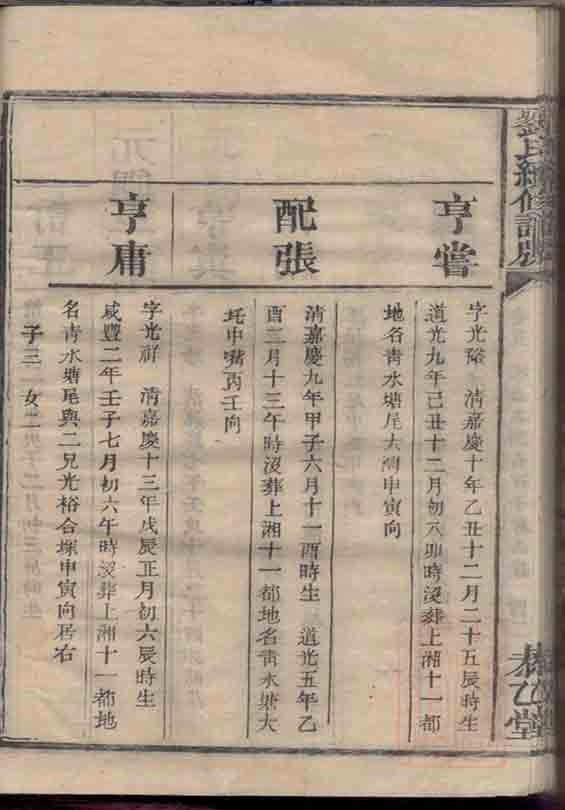 劉氏續修譜
恭乙堂
亨嘗
字光裕 清嘉慶十年乙丑十二月二十五辰時生
道光九年己丑十二月初六卯時沒葬上湘十一都
地名靑水塘尾大灣申寅向
配張
清嘉慶九年甲子六月十一酉時生 道光五年乙
酉三月十三午時沒葬上湘十一都地名靑水塘大
坵中嘴丙壬向
亨庸
字光祥 清嘉慶十三年戊辰正月初六辰時生
咸豐二年壬子七月初六午時沒葬上湘十一都地
名靑水塘尾與二兄光裕合塚申寅向居右
子三 女二